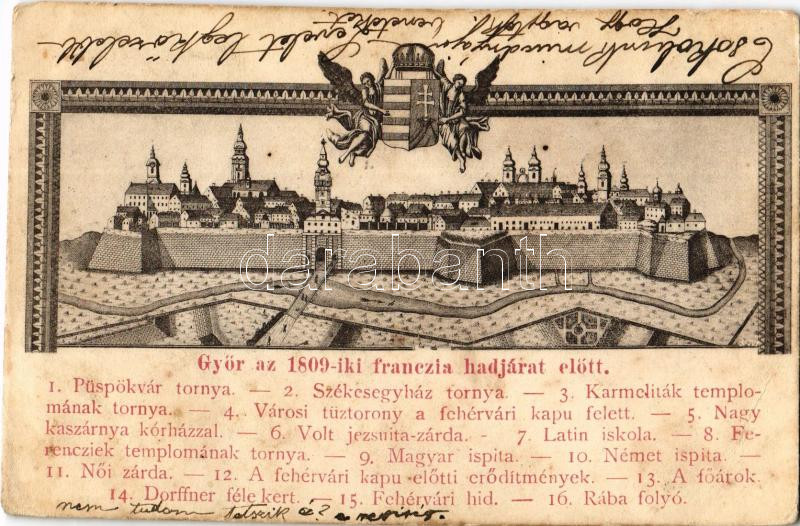 Csokolunk mindnyájan
Levelet legközelebb
darabanth
Győr az 1809-iki franczia hadjárat előtt.
1. Püspökvár tornya. — 2. Székesegyház tornya. — 3. Karmeliták templo-
mának tornya. — 4. Városi tüztorony a fehérvári kapu felett. — 5. Nagy
kaszárnya kórházzal. — 6. Volt jezsuita-zárda. - 7. Latin iskola. — 8. Fe-
rencziek templomának tornya. — 9. Magyar ispita. — 10. Német ispita. —
11. Női zárda. — 12. A fehérvári kapu előtti erődítmények. — 13. A főárok.
14. Dorffner féle kert. — 15. Fehérvári hid. — 16. Rába folyó.
nem tudom tetszik é?